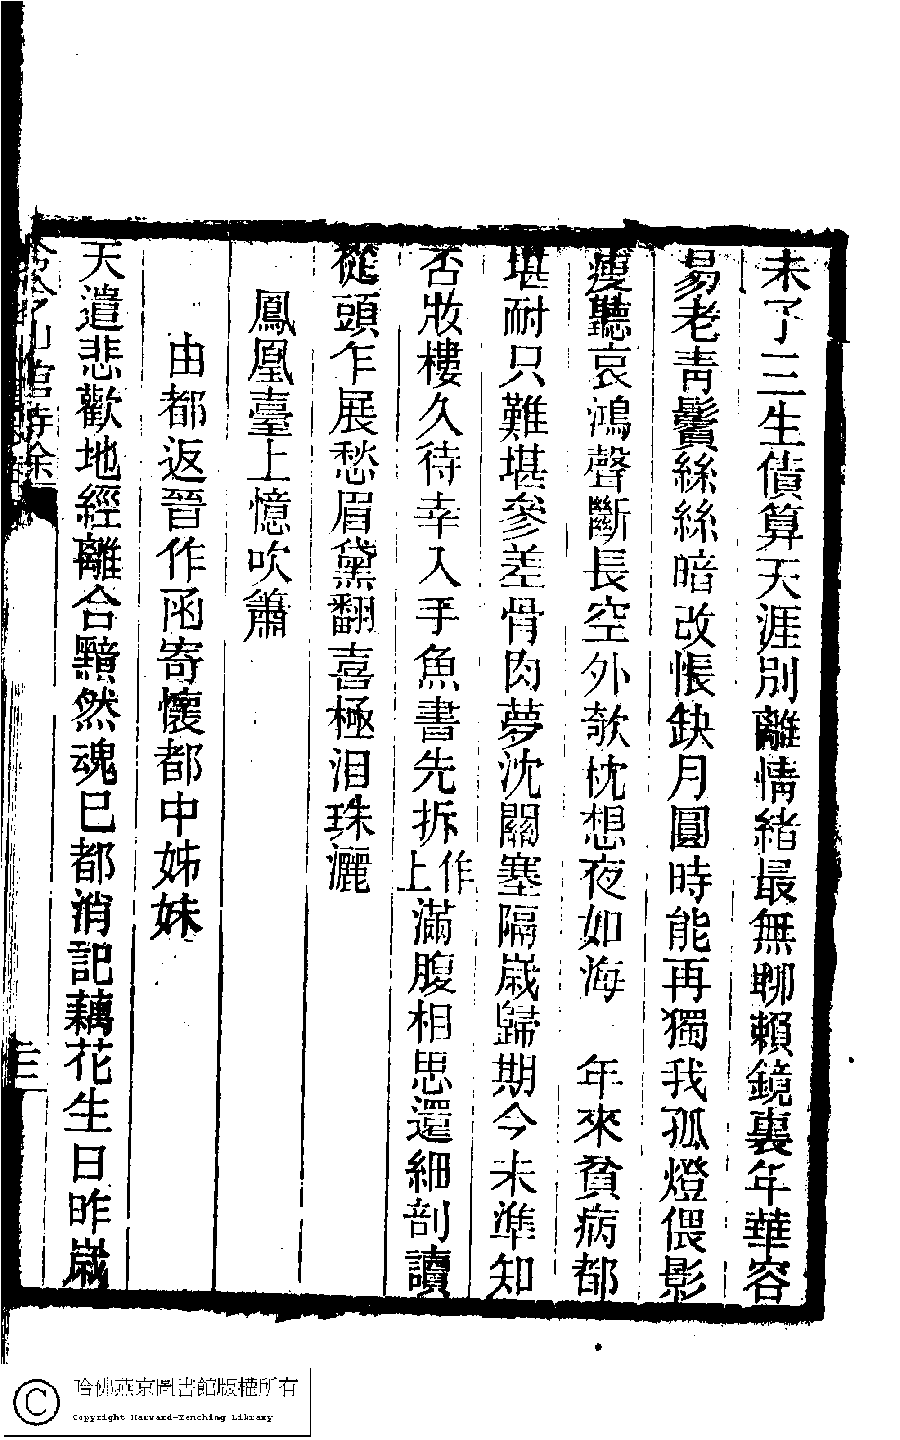 未了三生債算天涯別離情緒最無聊賴鏡裏年華容
易老青鬢絲絲暗改悵缺月圓時能再獨我孤燈偎影
瘦聽哀鴻聲斷長空外欹枕想夜如海　年來貧病都
堪耐只難堪參差骨肉夢沈關塞隔歲歸期今未準知
否妝樓久待幸入手魚書先拆作上滿腹相思還細剖讀
從頭乍展愁眉黛翻喜極泪珠灑
鳳凰臺上憶吹簫
由都返晉作函寄懷都中姊妹
天遣悲歡地經離合黯然魂已都消記藕花生日昨歲
哈佛燕京圖書館版權所有
Copyright Harvard-Yenching Library